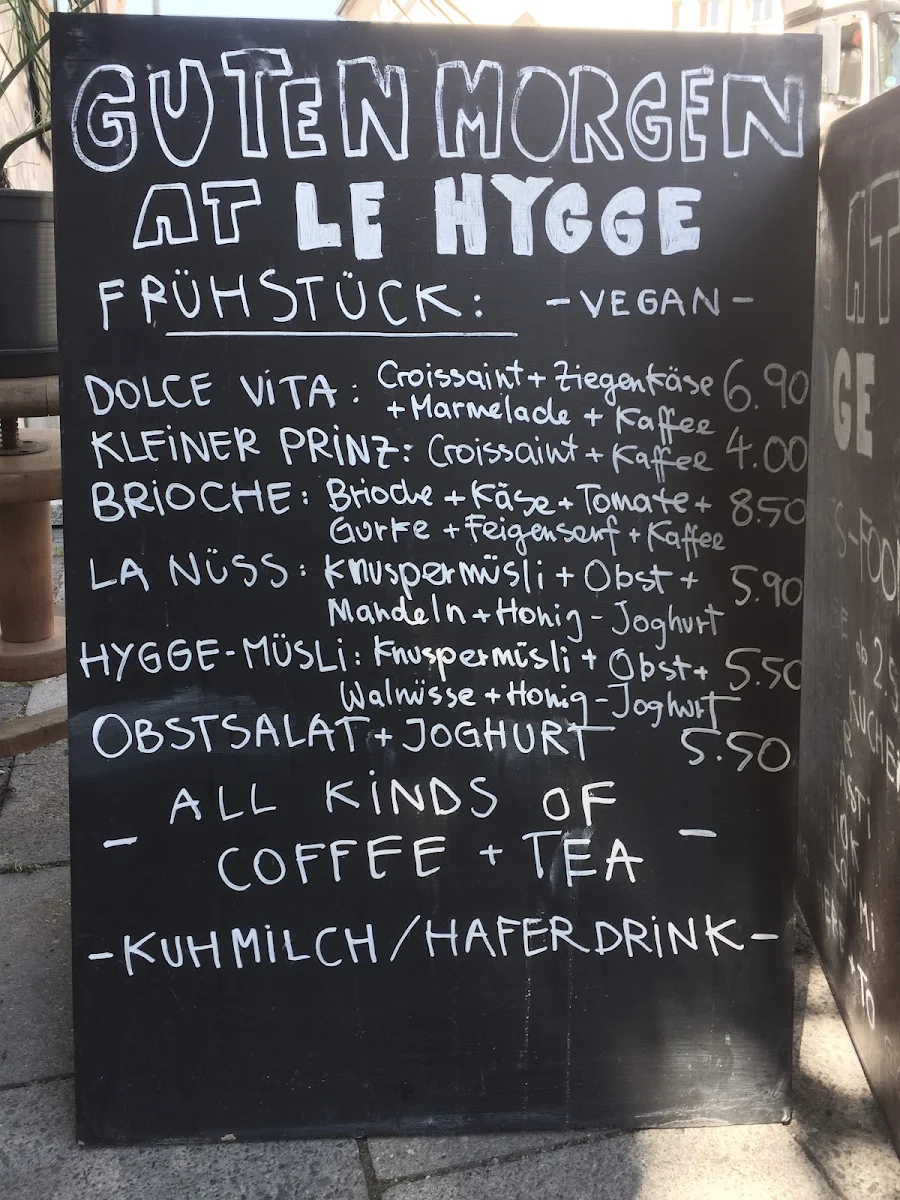 GUTEN MORGEN
AT LE HYGGE
FRÜHSTÜCK: -VEGAN-
DOLCE ViTA: Croissaint + Ziegenkäse 6.90
+ Marmelade + Kaffee
KLEiNER PRiNZ: Croissaint + Kaffee 4.00
BRiOCHE: Brioche + Käse + Tomate + 8.50
Gurke + Feigensenf + Kaffee
LA NÜSS: Knuspermüsli + Obst + 5.90
Mandeln + Honig - Joghurt
HYGGE-MÜSLi: Knuspermüsli + Obst + 5.50
Walnüsse + Honig - Joghurt
OBSTSALAT + JOGHURT 5.50
- ALL KiNDS OF
COFFEE + TEA -
-KUHMiLCH/HAFERDRiNK-
AT
GE
S-FOO
2.5
KUCHE
Mi
TO